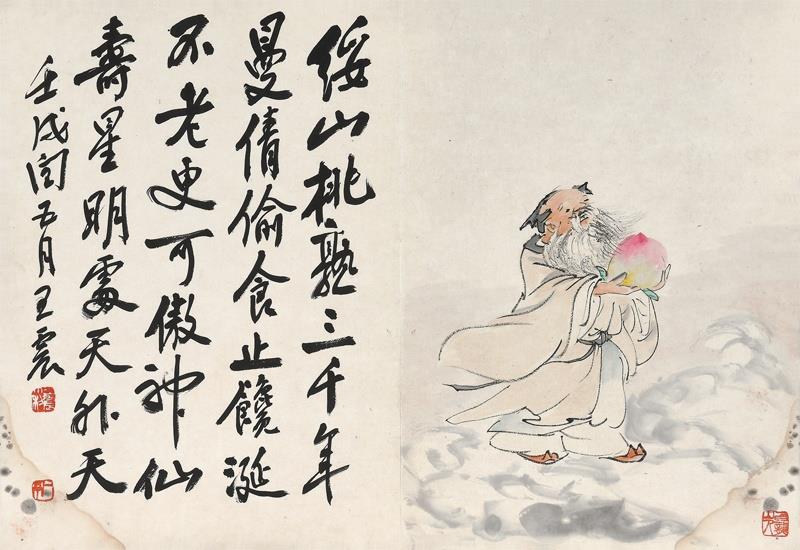 綏山桃熟三千年
曼倩偷食止饞涎
不老更可傲神仙
壽星明處天外天
壬戌閏五月王震